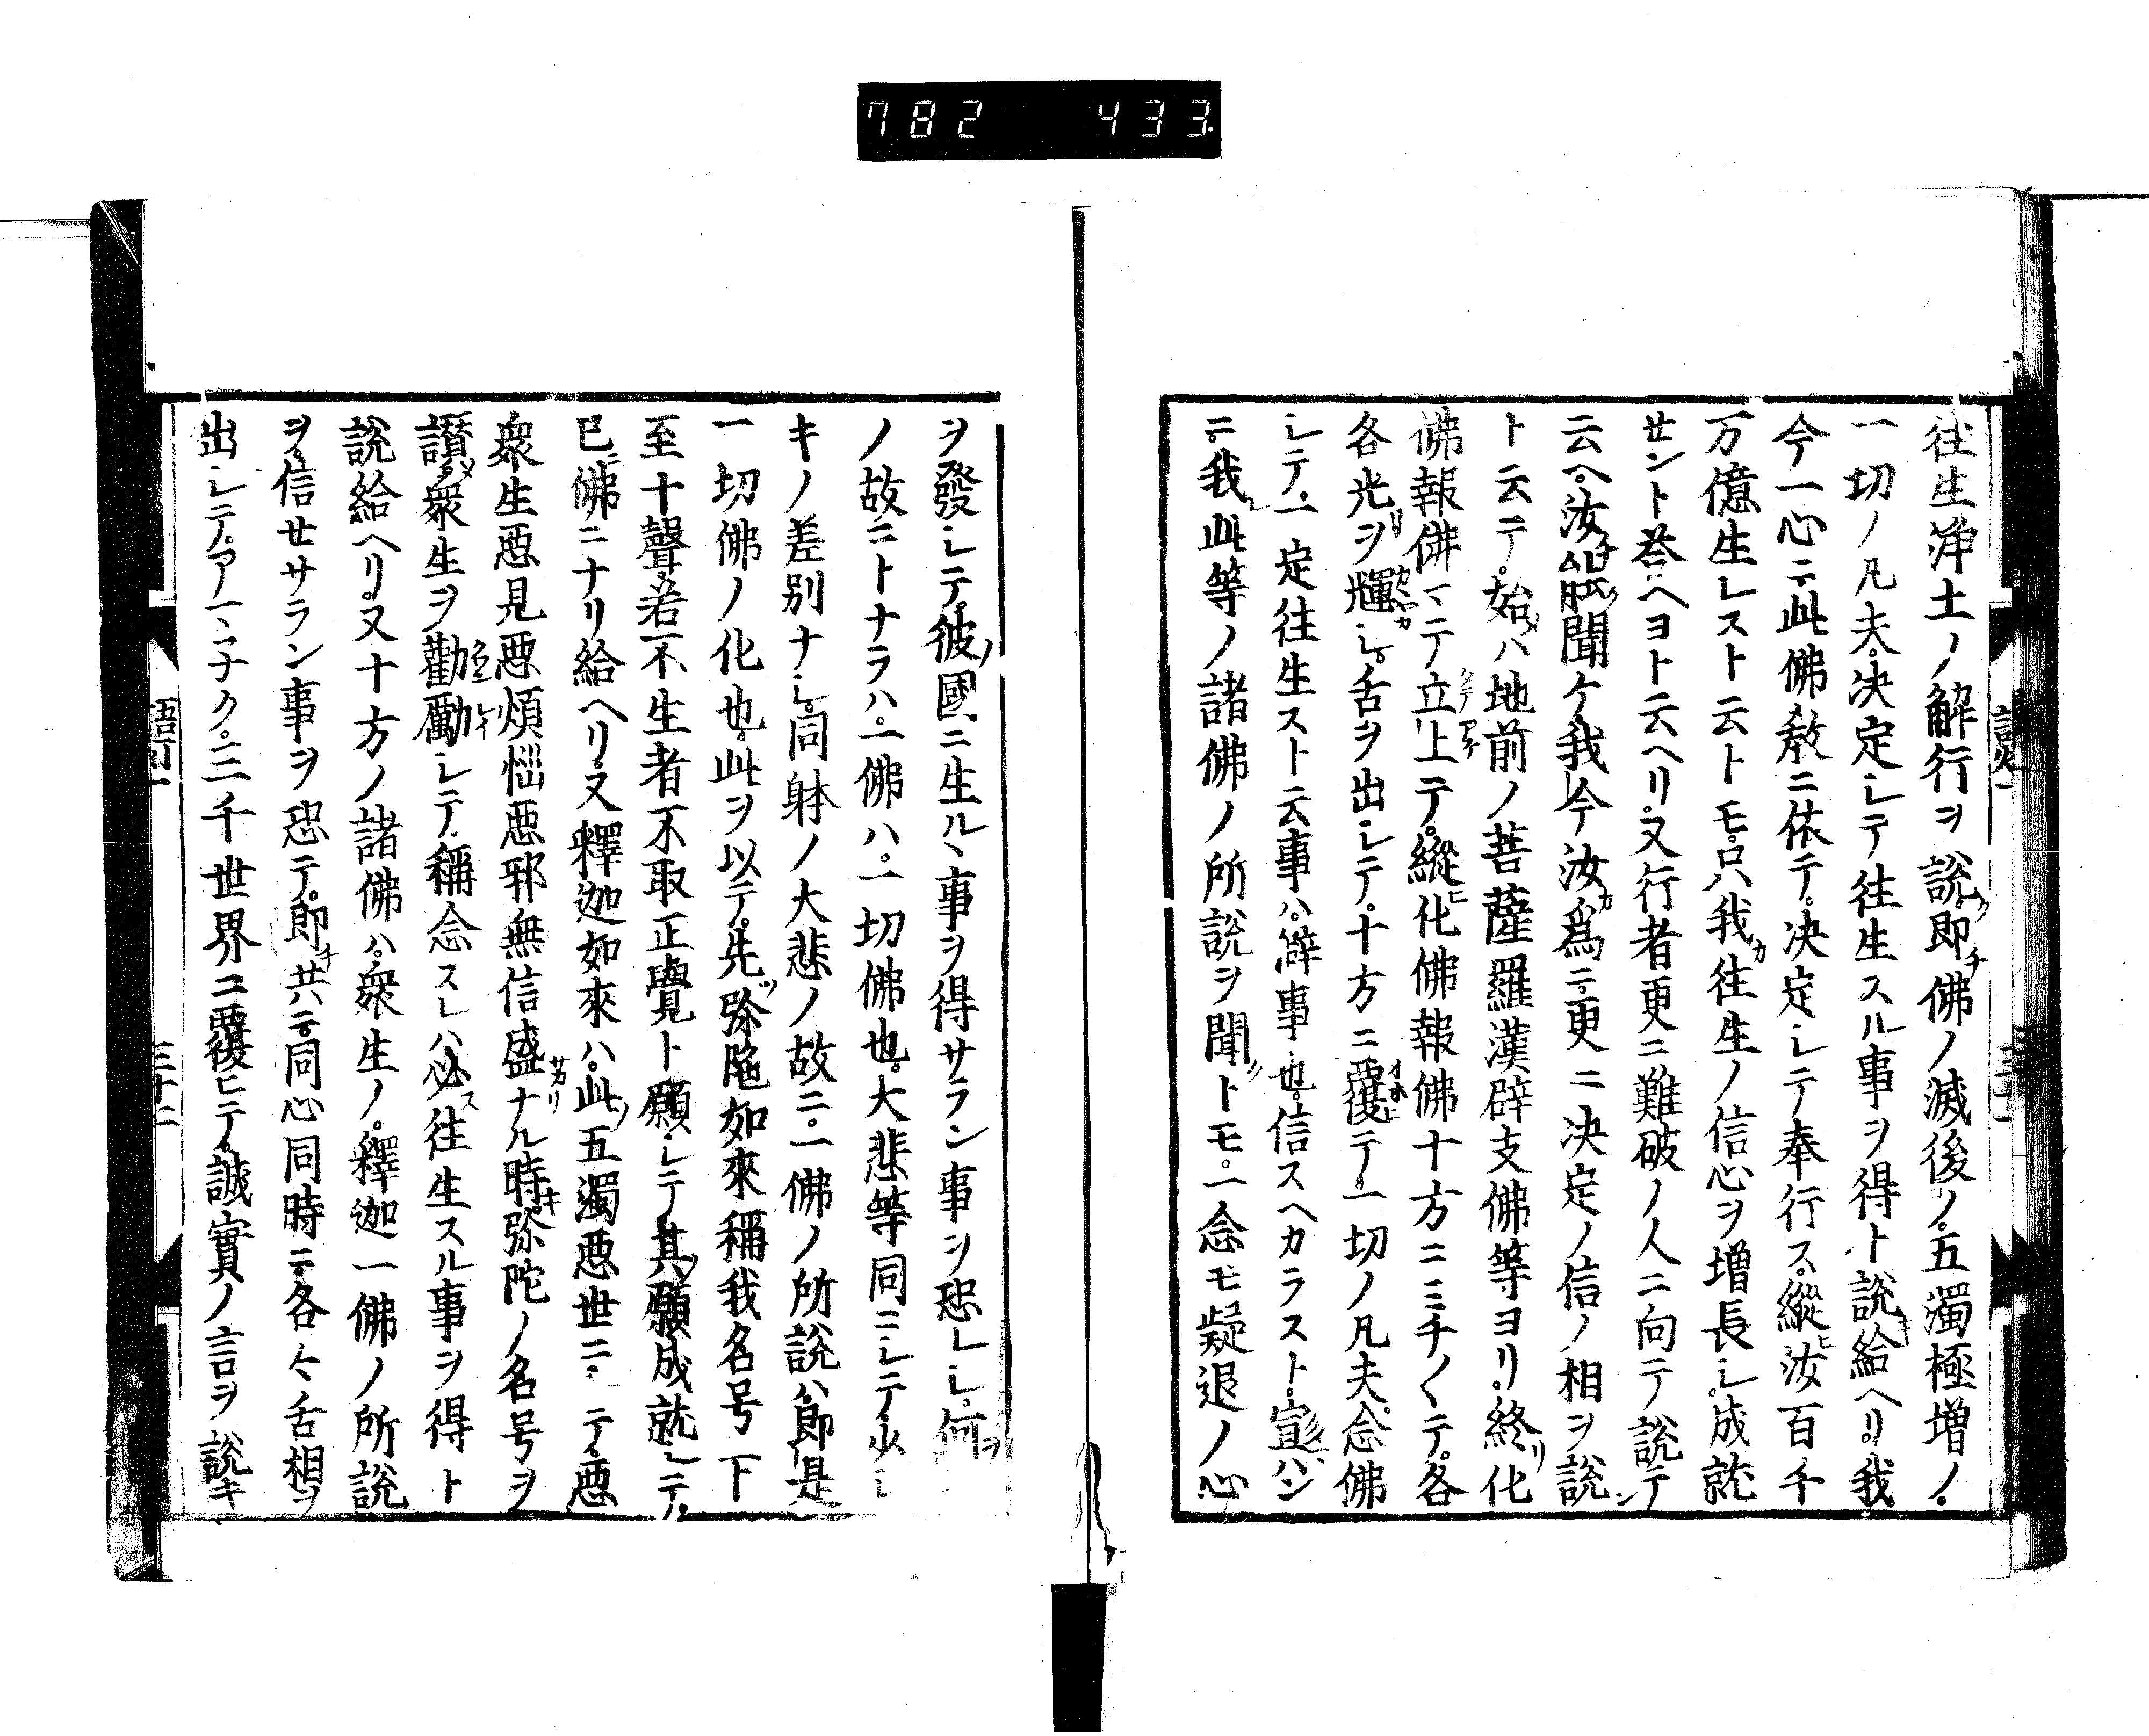 782 433
往生淨土ノ解行ヲ説即チ佛ノ滅後ノ五濁極増ノ
一切ノ凡夫決定シテ往生スル事ヲ得ト説給ヘリ我
今一心ニ此佛教ニ依テ決定シテ奉行ス縱ヒ汝百千
万億生レスト云トモ只我カ往生ノ信心ヲ増長シ成就
せント荅ヘヨト云ヘリ又行者更ニ難破ノ人ニ向テ説テ
云ヘ汝能聞ケ我今汝カ爲ニ更ニ決定ノ信ノ相ヲ説ン
ト云テ始メハ地前ノ菩薩羅漢辟支佛等ヨリ終リ化
佛報佛マテ立上テ縱ヒ化佛報佛十方ニミチ〱テ各
各光ヲ輝シ舌ヲ出シテ十方ニ覆テ一切ノ凡夫念佛
シテ一定往生スト云事ハ僻事也信スヘカラスト宣ハン
ニ我レ此等ノ諸佛ノ所説ヲ聞トモ一念モ疑退ノ心
ヲ發シテ彼ノ國ニ生ルヽ事ヲ得サラン事ヲ恐レシ何ヲ
ノ故ニトナラハ一佛ハ一切佛也大悲等同ニシテ少シ
キノ差別ナシ同躰ノ大悲ノ故ニ一佛ノ所説ハ即是
一切佛ノ化也此ヲ以テ先ツ弥陁如來稱我名号下
至十聲若不生者不取正覺ト願シテ其願成就シテ
已ニ佛ニナリ給ヘリ又釋迦如來ハ此ノ五濁惡世ニテ惡
衆生惡見惡煩惱惡邪無信盛ナル時キ弥陀ノ名号ヲ
讃メ衆生ヲ勸勵シテ稱念スレハ必ス往生スル事ヲ得ト
説給ヘリ又十方ノ諸佛ハ衆生ノ釋迦一佛ノ所説
ヲ信せサラン事ヲ恐テ即チ共ニ同心同時ニ各々舌相ヲ
出シテアマネク三千世界ニ覆ヒテ誠實ノ言ヲ説キ
三十二